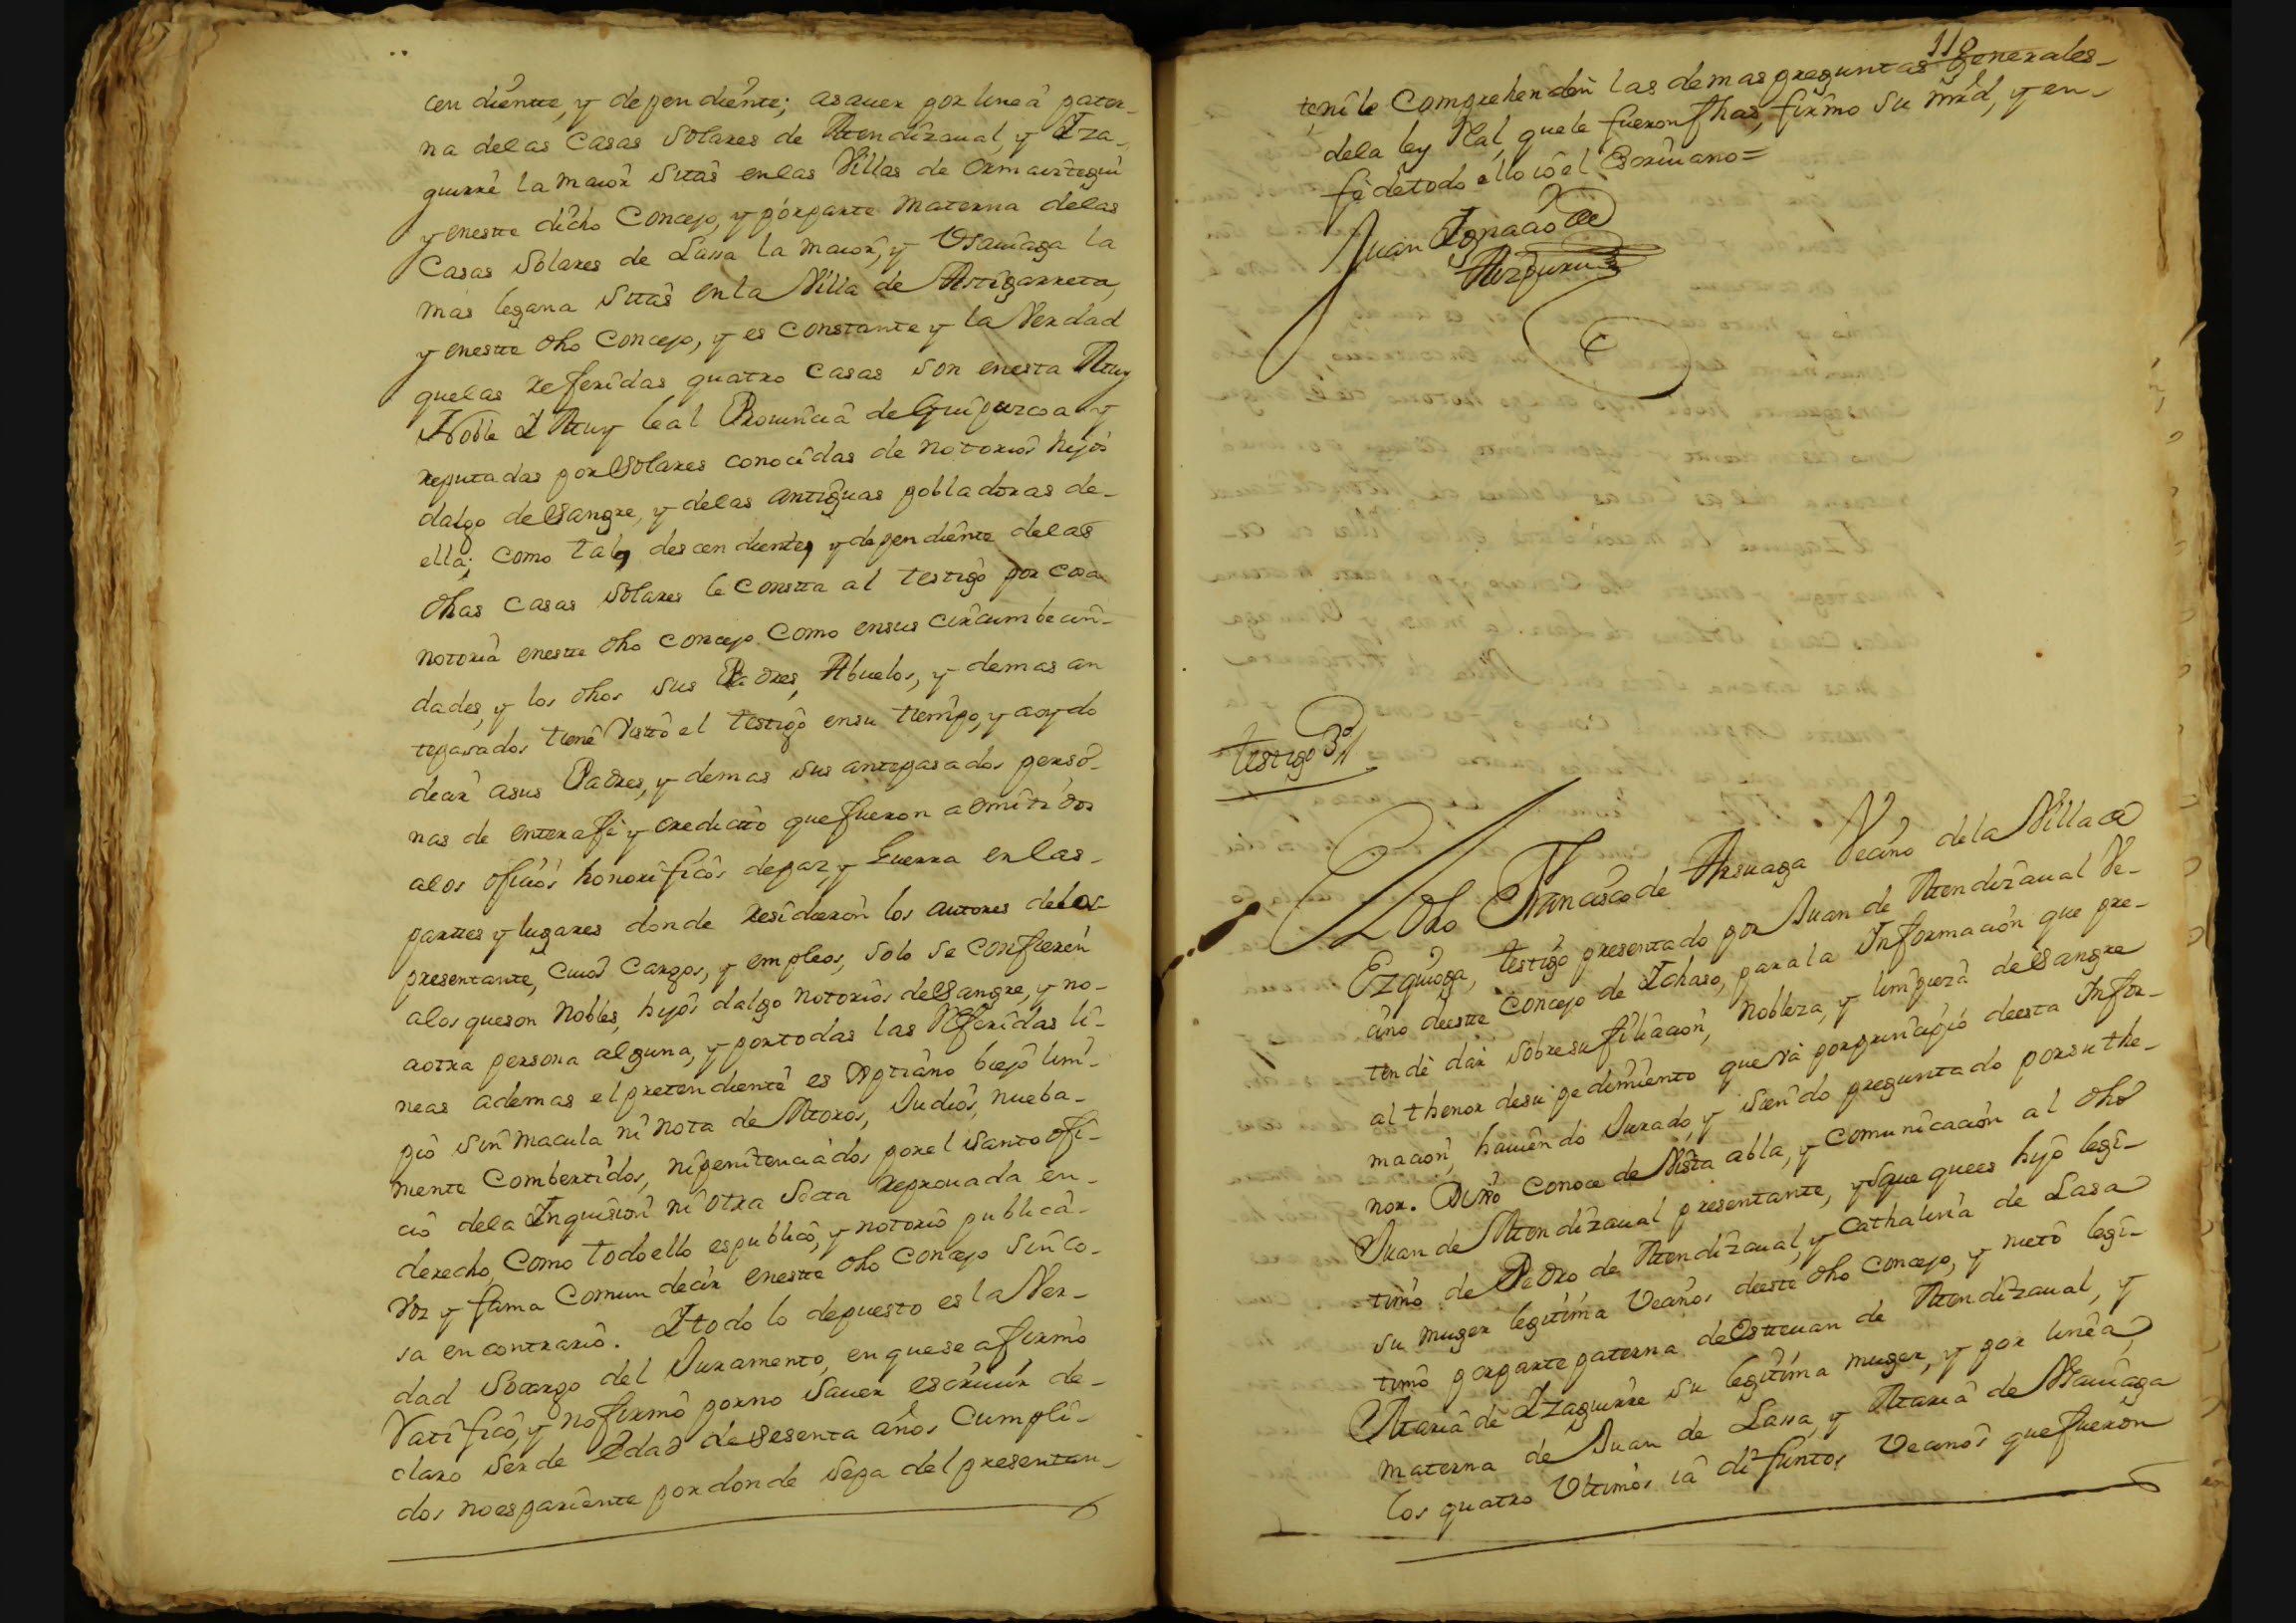 cendiente, y dependiente; asauer por linea pater-
na delas Casas Solares de Mendizaual, y Yza-
guirre la maior Sitas enlas Villas de Ormaiztegui
y eneste dicho Concejo, y por parte Materna delas
Casas Solares de Lassa la maior, y Vsauiaga la
mas legana Sitas enla Villa de Astigarreta,
y eneste dho Concejo, y es constante y la Verdad
quelas referidas quatro Casas son enesta Muy
Noble Y Muy leal Prouincia de Guipuzcoa y
reputadas por Solares conocidas de notorios hijos
dalgo de Sangre, y delas antiguas pobladoras de-
ella; como tales descendientes y dependiente delas
dhas Casas Solares le constta al testigo por cosa
notoria eneste dho concejo Como ensus circumbecin-
dades, y los dhos sus Padres, Abuelos, y demas an
tepasados tiene Visto el testigo ensu tiempo, y aoydo
decir asus Padres, y demas sus antepasados perso-
nas de entera fe y credicto que fueron admitidos
alos oficios honorificos depaz, y Guerra enlas-
parttes y lugares donde residieron los autores delos-
presentante, Cuios Cargos, y empleos, solo se confieren
alos queson Nobles, hijos dalgo notorios de Sangre, y no-
aotra persona alguna, y portodas las Referidas li-
neas ademas el pretendiente es Xptiano biejo lim-
pio sin macula ni nota de Moros, Judios, nueba-
mente Combertidos, nipenitenciados porel santo ofi-
cio dela Inquision ni otra Secta reprouada en-
derecho, Como todoello espublico, y notorio publica-
Voz y fama Comun decir eneste dho Concejo Sinco-
sa en contrario. Y todo lo depuesto es la Ver-
dad Socargo del Juramento, en quese afirmo
Ratifico, y nofirmo porno Sauer escriuir de-
claro Ser de edad de Sesenta años Cumpli-
dos noespariente por donde Sepa del presentan-
110
teni le Comprehenden las demas preguntas generales-
dela ley Rial, quele fueron fhas, firmo su mrd, y en-
fe detodo ello io el Escriuano=
Juan Ygnacio de
Aizpuru
testigo 3º
El dho Francisco de Arsuaga Vecino dela Villa de
Ezquioga, testigo presentado por Juan de Mendizaual Ve-
cino deeste Concejo de Ychaso, parala Informacion que pre-
tende dar sobresu filiacion, Nobleza, y limpieza de Sangre
al thenor desu pedimiento que va porprincipio deesta Infor-
macion, hauiendo Jurado, y siendo preguntado porsu the-
nor. Dixo Conoce de Vista abla, y comunicacion al dho
Juan de Mendizaual presentante, ysaue quees hijo legi-
timo de Pedro de Mendizaual, y Cathalina de Lasa
su muger legitima Vecinos deeste dho Concejo, y nieto legi-
timo porparte paterna de Estteuan de Mendizaual, y
Maria de Yzaguirre su legitima muger, y por linea
materna de Juan de Lassa, y Maria de Vsauiaga
los quatro Vltimos ia difuntos Vecinos quefueron